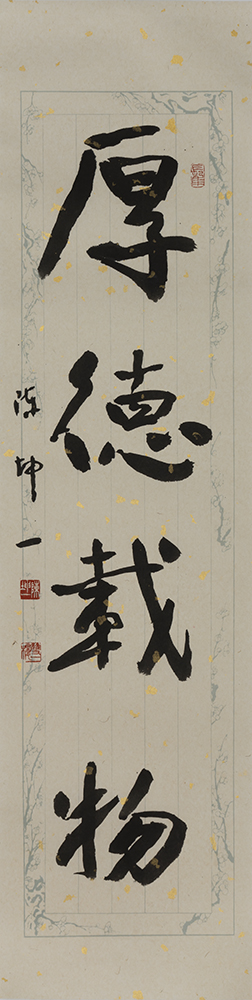 厚德載物
陈坤一